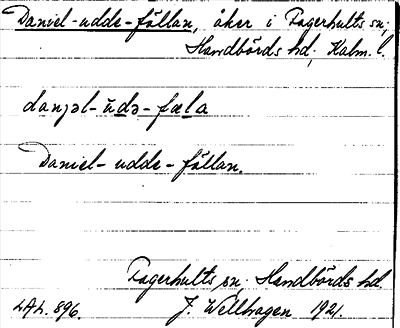 Daniel-udde-fällan, åker i Fagerhults sn;
Handbörds hd; Kalm. l.
danɟəl-ŭdə-fæla
Daniel-udde-fällan.
Fagerhults sn; Handbörds hd.
LAL. 896. J. Wellhagen 1921.